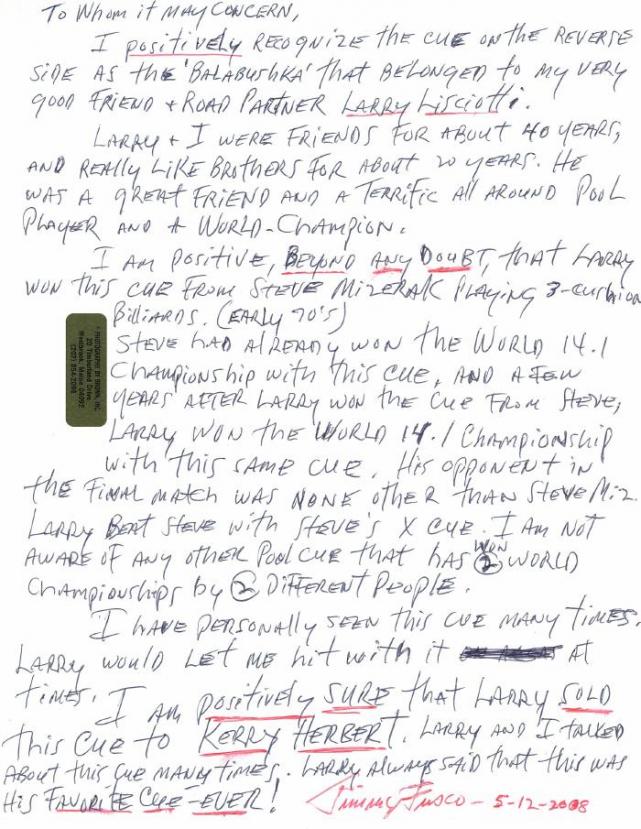 To Whom it May Concern,
I positively recognize the cue on the reverse
side as the 'Balabushka' that belonged to my very
good friend + road partner Larry Lisciotti.
Larry + I were friends for about 40 years,
and really like brothers for about 20 years. He
was a great friend and a terrific all around pool
player and a World-Champion.
I am positive, beyond any doubt, that Larry
won this cue from Steve Mizerak playing 3-cushion
Billiards. (Early 70's)
Steve had already won the World 14.1
Championship with this cue, and a few
years after Larry won the cue from Steve,
Larry won the World 14.1 Championship
with this same cue. His opponent in
the final match was none other than Steve Miz.
Larry beat Steve with Steve's X cue. I am not
aware of any other pool cue that has won 2 World
Championships by 2 different people.
I have personally seen this cue many times.
Larry would let me hit with it at
times.
I am positively sure that Larry sold
this cue to Kerry Herbert. Larry and I talked
about this cue many times. Larry always said that this was
his favorite cue-ever! Jimmy Fusco - 5-12-2008